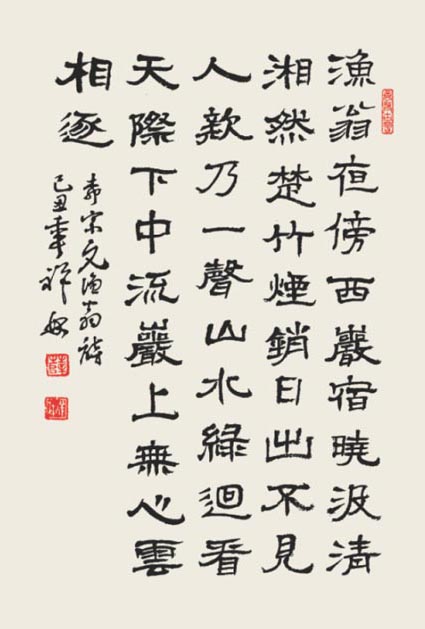 漁翁夜傍西巖宿曉汲清
湘然楚竹煙銷日出不見
人欸乃一聲山水綠迴看
天際下中流巖上無心雲
相逐
元渔翁詩
己丑年許